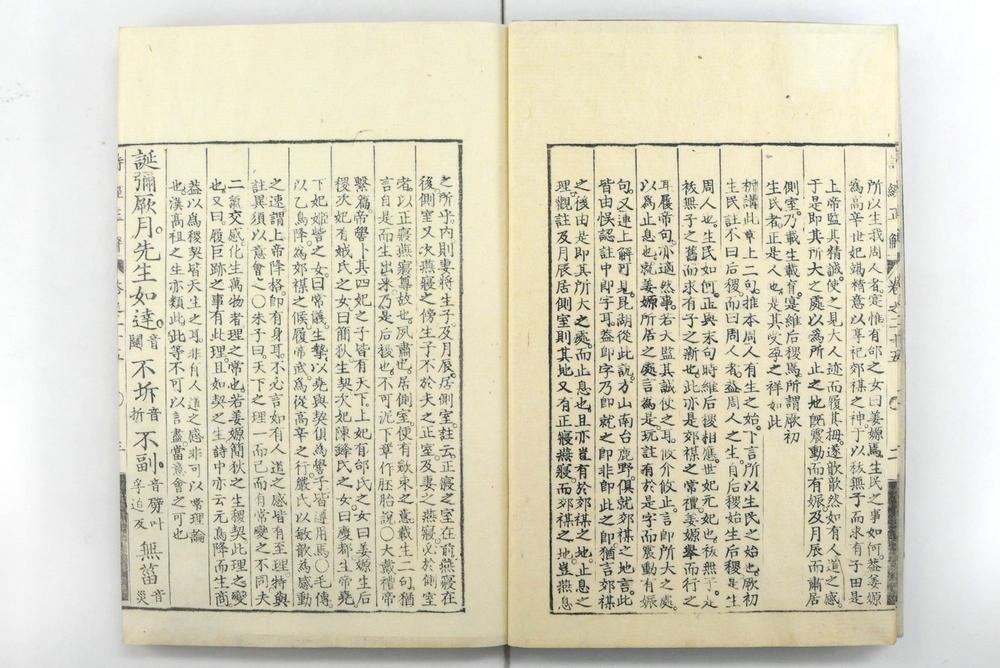 所以生我周人者寔惟有邰之女曰姜嫄焉生民之事如何蓋姜嫄
為高辛世妃竭精意以享祀郊禖之神于以祓無子而求有子田是
上帝監其精誠使之見大人迹而履其拇遂歆歆然如有人道之感
于是即其所大之處以為所止之地既震動而有娠及月辰而肅居
側室乃載生載育寔維后稷焉所謂厥初
生民者正是人也是其受孕之祥如此
析講此章上二句推本周人有生之始下言所以生民之始也厥初
生民註不曰后稷而曰周人者益周人之生自后稷始生后稷是生
周人也生民如何正與末句時維后稷相應世妃元妃也祓無子是
祓無子之舊而求有子之新也此亦是郊禖之常禮姜嫄舉而行之
耳履帝句亦適然事若大監其誠使之耳攸介攸止言即所大之處
以為止息也就姜嫄所居之處言為是玩註有於是字而震動有娠
句又連上解可見昆湖從此說方山南台鹿野俱就郊禖之地言此
皆由悞認註中即字耳益即字也乃即就之即非即此之即猶言郊禖
之後由是即其所大之處而止息也且亦豈有於郊禖之地止息之
理觀註及月辰居側室則其地又有正寢燕寢而郊禖之地豈燕息
之所乎內則妻將生子及月辰居側室註云正寢之室在前燕寢在
後側室又次燕寢之傍生子不於夫之正室及妻之燕寢必於側室
者以正寢燕寢尊故也夙肅也居側室便有歛束之意載生二句猶
自是而生出來乃是后稷也不可泥下章作胚胎說〇大戴禮帝
繫篇帝嚳卜其四妃之子皆有天下上妃有邰氏之女曰姜嫄生后
稷次妃有娀氏之女曰簡狄生契次妃陳鋒氏之女曰慶都生帝堯
下妃娵訾之女曰常儀生摯以堯與契俱為嚳子皆遵用焉〇毛傳
以乙鳥降為郊禖之候履帝武為從高辛之行巖氏以敏歆為感動
之速謂上帝降格即有身耳不必言如有人道之感皆有至理特與
註異須以意會之〇朱子曰天下之理一而已而有常變之不同夫
二氣交感化生萬物者理之常也若姜嫄簡狄之生稷契此理之變
也又曰履巨跡之事有此理且如契之生詩中亦云元鳥降而生商
蓋以為稷契皆天生之耳非有人道之感非可以常理論
也漢高祖之生亦類此此等不可以言盡當意會之可也
誕彌厥月先生如達音闥不坼音折不副音劈叶孚迫反無菑音災